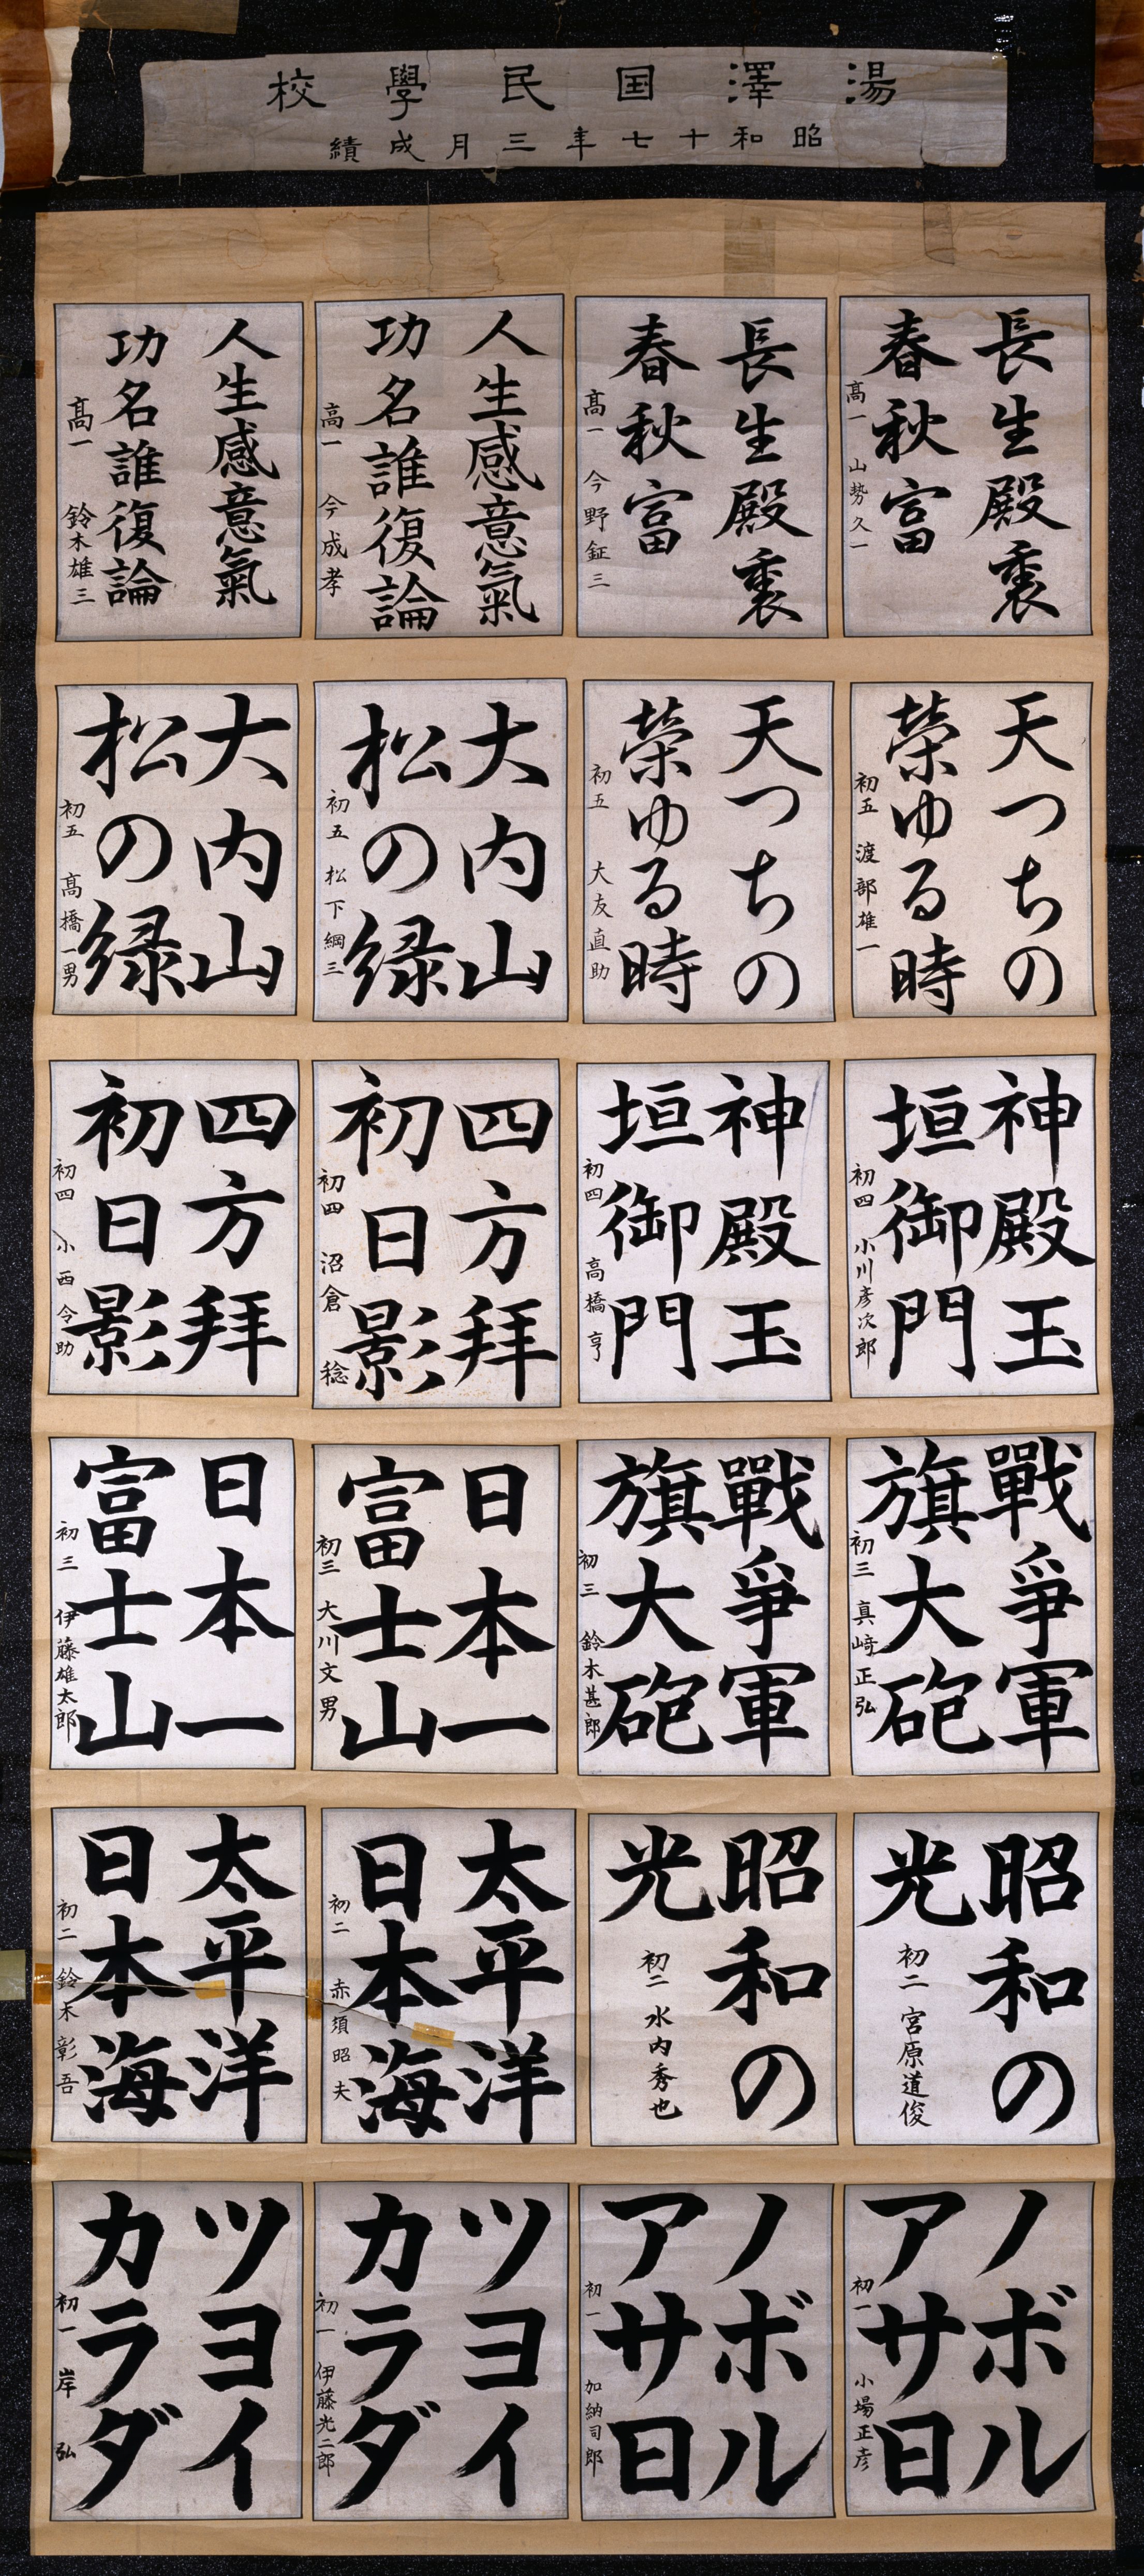 湯澤国民學校
昭和十七年三月成績
長生殿裏
春秋富
高一 山勢久一
長生殿裏
春秋富
高一 今野鉦三
人生感意氣
功名誰復論
高一 今成孝
人生感意氣
功名誰復論
高一 鈴木雄三
天つちの
榮ゆる時
初五 渡部雄一
天つちの
榮ゆる時
初五 大友直助
大内山
松の緑
初五 松下綱三
大内山
松の緑
初五 高橋一男
神殿玉
垣御門
初四 小川彦次郎
神殿玉
垣御門
初四 高橋亨
四方拜
初日影
初四 沼倉稔
四方拜
初日影
初四 小西令助
戰爭軍
旗大砲
初三 真崎正弘
戰爭軍
旗大砲
初三 鈴木甚郎
日本一
富士山
初三 大川文男
日本一
富士山
初三 伊藤雄太郎
昭和の
光
初二 宮原道俊
昭和の
光
初二 水内秀也
太平洋
日本海
初二 赤須昭夫
太平洋
日本海
初二 鈴木彰吾
ノボル
アサ日
初一 小場正彦
ノボル
アサ日
初一 加納司郎
ツヨイ
カラダ
初一 伊藤光二郎
ツヨイ
カラダ
初一 岸弘